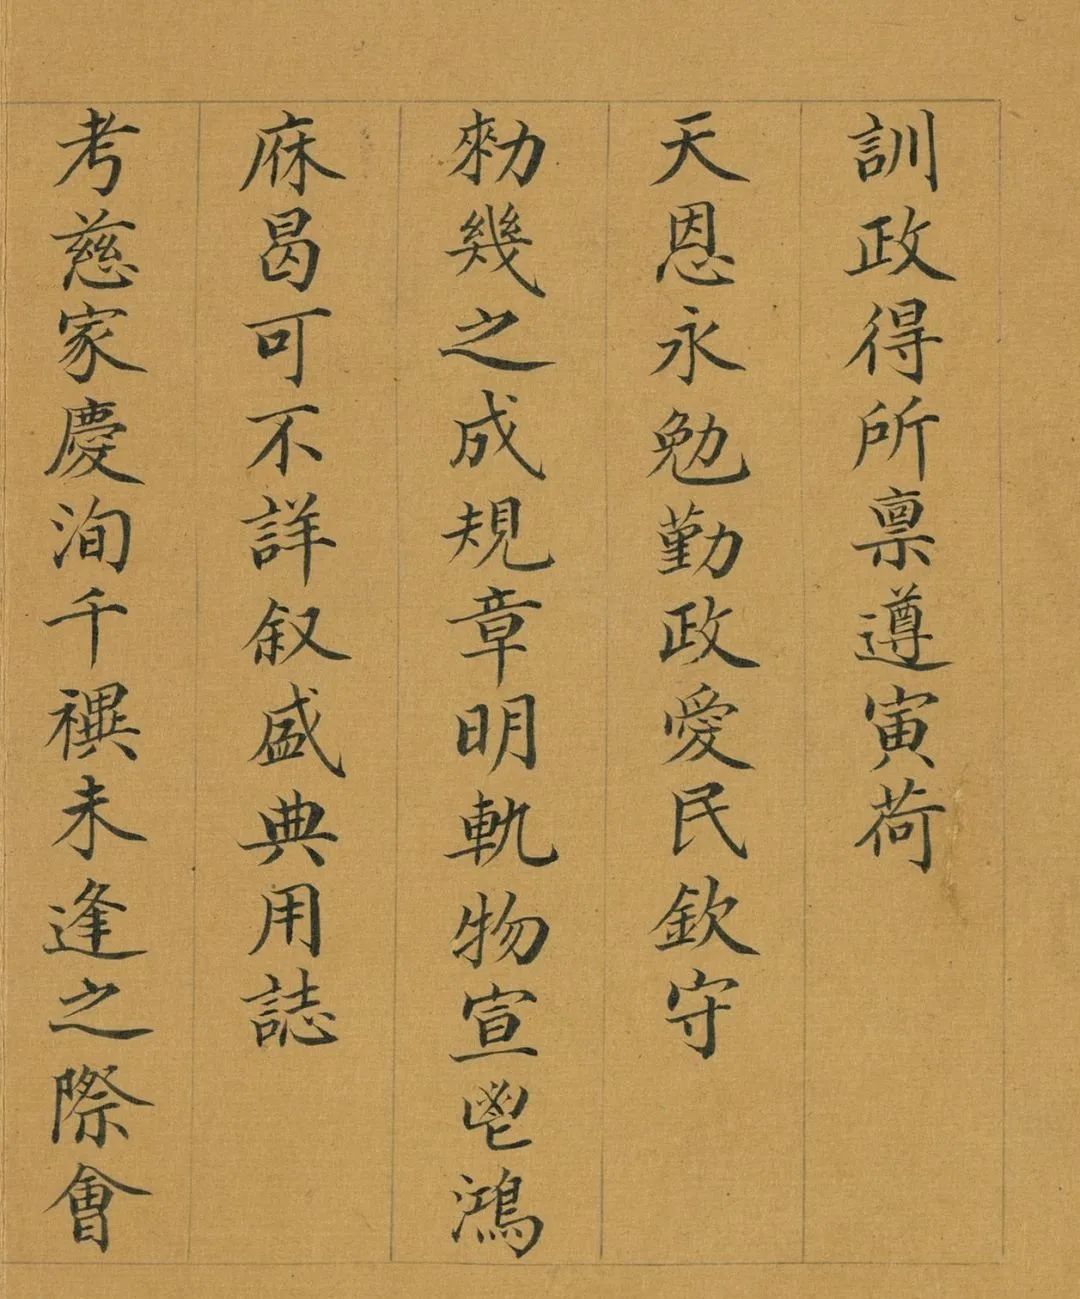 訓政得所禀遵寅荷
天恩永勉勤政愛民欽守
勑幾之成規章明軌物宣鬯鴻
庥曷可不詳叙盛典用誌
考慈家慶洵千禩未逢之際會